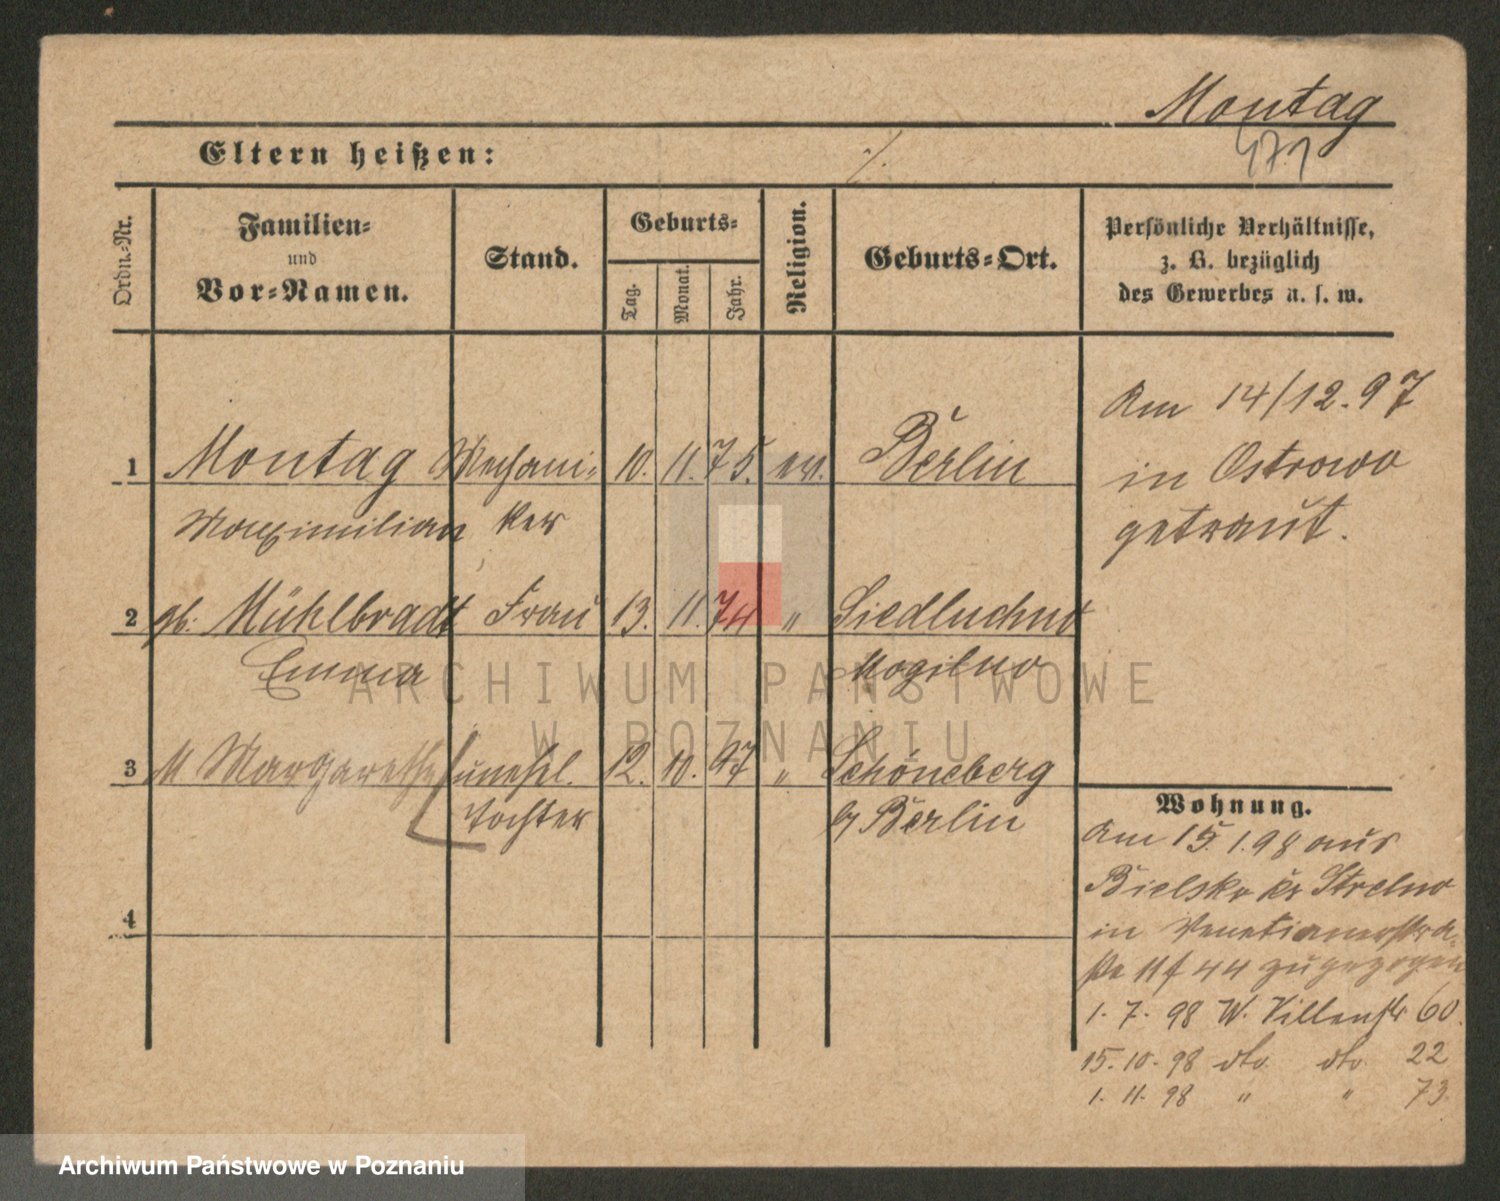 Montag
Eltern heißen: ./.
Ordn.-Nr.
Familien-
und
Vor-Namen.
Stand.
Geburts-
Tag.
Monat.
Jahr.
Religion.
Geburts-Ort.
Persönliche Verhältnisse,
z. B. bezüglich
des Gewerbes u. s. w.
Am 14/12.97
in Ostrowo
getraut.
1 Montag Mechani- 10. 11. 75. ev. Berlin
Maximilian ker
2 gb. Mühlbradt Frau 13. 11. 74 " Siedluchno
Emma Mogilno
3 M Margarethe unehel. 12. 10. 97 " Schöneberg
Tochter b/ Berlin
4
Wohnung.
Am 15.1.98 aus
Bielsko Kr Strelno
in Venetianerstra-
ße 11 f 44 zugezogen
1. 7. 98 W. Villenstr 60.
15. 10. 98 dto. dto. 22
1. 11. 98 " " 73.
ARCHIWUM PAŃSTWOWE
W POZNANIU
Archiwum Państwowe w Poznaniu